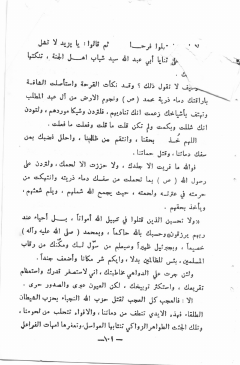 لوا فرحـــا ثم قالوا: يا يزيد لا تشل
ثنايا أبي عبد الله سيد شباب اهـل الجنة، تنكتها
لا تقول ذلك؟ وقد نكأت القرحة واستأصلت الشافة
باراقتك دماء ذرية محمد (ص) ونجوم الارض من آل عبد المطلب
وتهتف بأشياخك زعمت انك تناديهم، فلتردن وشيكا موردهم، ولتودن
انك شللت وبكمت ولم تكن قلت ما قلت وفعلت ما فعلت.
اللهم خـذ بحقنا، وانتقم ممن ظلمنا، واحلل غضبك بمن
سفك دماءنا، وقتل حماتنا.
فوالله ما فريت الا جلدك، ولا حززت الا لحمك، ولتردن على
رسول الله (ص) بما تحملت من سفك دماء ذريته وانتهكت من
حرمته في عترته ولحمته، حيث يجمع الله شملهم، ويلم شعثهم،
ويأخذ بحقهم.
«ولا تحسبن الذين قتلوا في سبيل الله أمواتاً، بـل أحياء عند
ربهم يرزقون» وحسبك بالله حاكماً، وبمحمد (صلى الله عليه وآله)
خصيماً، وبجبرئيل ظهيراً وسيعلم من سوّل لك ومكّنك من رقاب
المسلمين، بئس للظالمين بدلا، وايكم شر مكانا وأضعف جنداً.
ولئن جرت علي الدواهي مخاطبتك، اني لاستصغر قدرك واستعظم
تقريعك، واستكثر توبيخك، لكن العيون عبرى والصدور حرى.
الا فالعجب كل العجب لقتل حزب الله النجباء بحزب الشيطان
الطلقاء، فهذه الايدي تنطف من دماءنا، والافواه تتحلب من لحومنا،
وتلك الجثث الطواهر الزواكي تنتابها العواسل، وتعفرها امهات الفراعل
ـ ١٠١ ـ